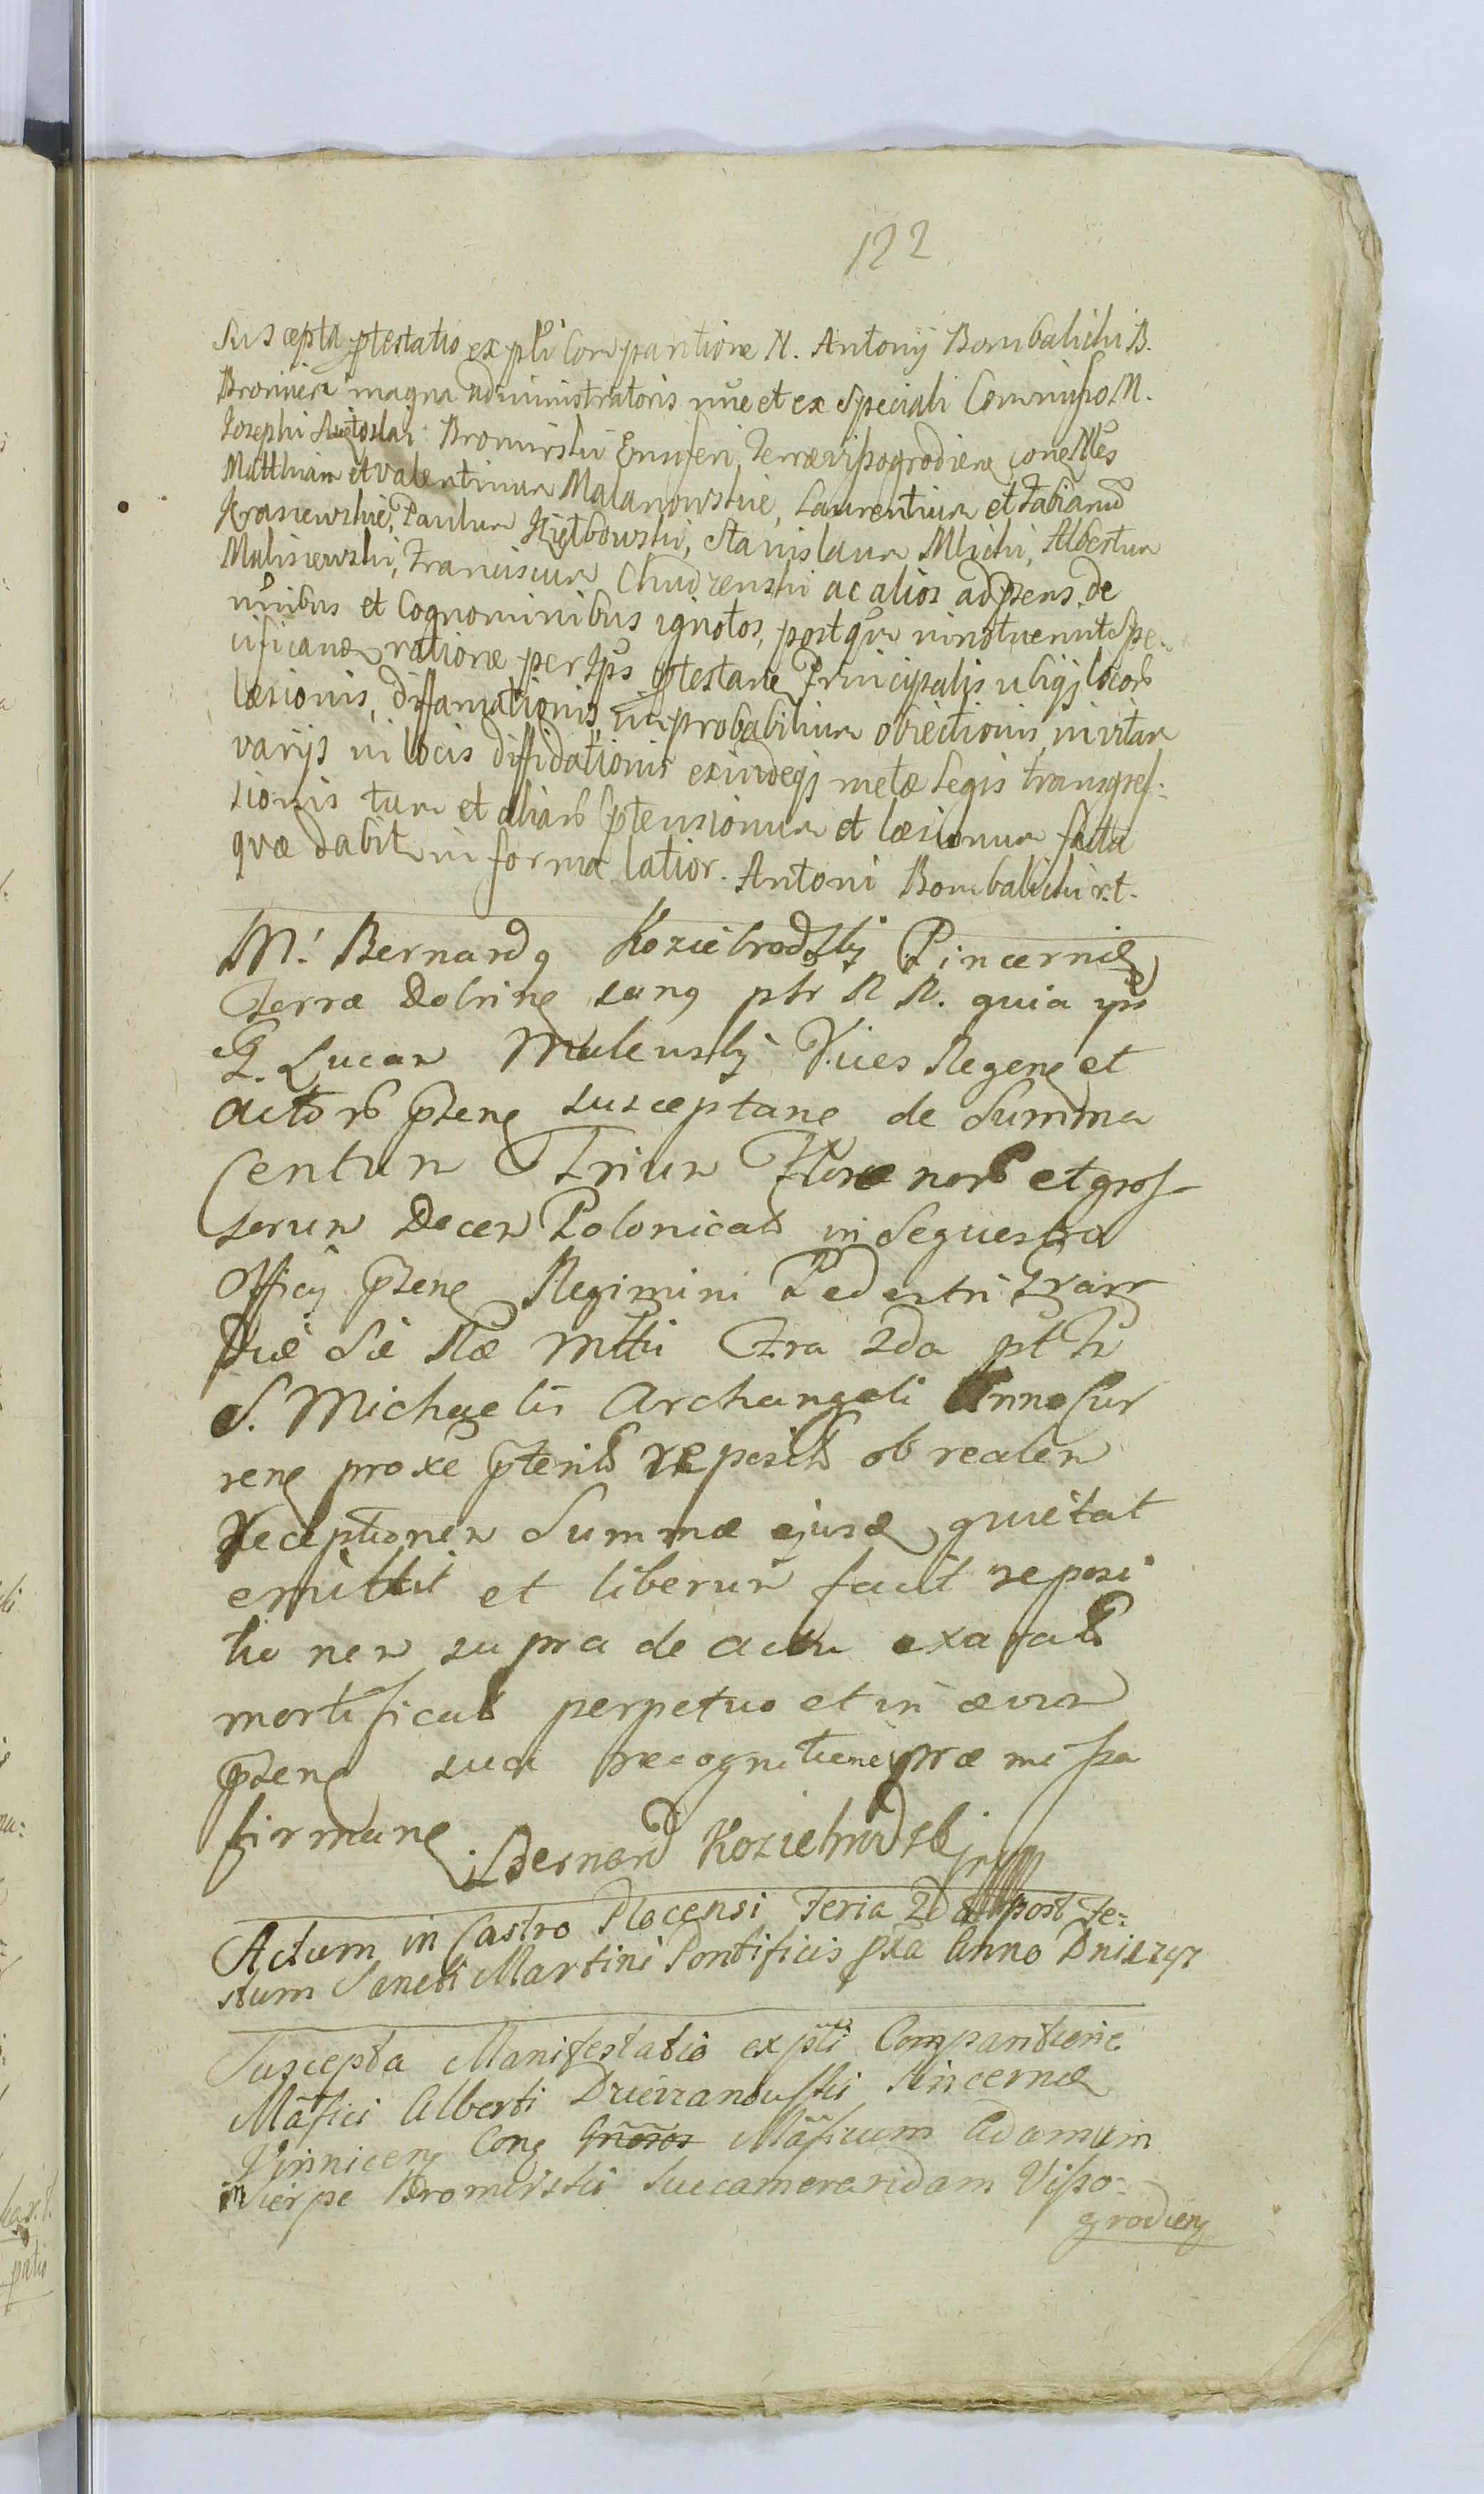 122
Suscepta ptestatio ex psti Comparitione N. Antonij Bombalichi B.
Bromierz magna administratoris nne et ex Speciali Commisso M.
Josephi Bromirski Ensiferi Terræ Vissogrodien cone Nles
Matthiam et Valentinum Malanowskie, Laurentium et Fabianum
Krasiewskie, Paulum Kiełbowski, Stanislaum Mlicki, Albertum
Malisiewski, Franciscum Chudzenski ac alios ad psens de
nnibus et Cognominibus ignotos, postqm innotuerint Spe-
cificand ratione per Ips ptestane Principalis ubiqj locorb
læsionis, diffamationis, improbabilium obiectionis, in vitam
varijs in locis diffidationis exindeqj metæ Legis transgres-
sionis tum et aliarb ptensionum et læsionum facta
quæ dabit in forma latior. Antoni Bombalicki r.t.
M. Bernardq Koziebrodzkj Pincerniд
Terræ Dobrine sanq ptr R R. quia ips
G. Lucam Malewskj Vices Regene et
actorb psene susceptane de Summa
Centum Trium Florenorb et gros-
sorum Decem Polonicalb in Sequestra
Officij psene Regimini Pedestri
S. Michaelis Archangeli Anno Cur
rene proxe pterito repositb ob realem
Receptionem Summæ ejusd quietat
emittit et liberum facit reposi
tionem supra de actu exaratb
mortificatb perpetuo et in ævum
psene sua recognitione præmissa
firmane Bernard Koziebrodzkj mpp
Actum in Castro Plocensi Feria 2da post Fe-
stum Sancti Martini Pontificis pxa Anno Dni
Suscepta Manifestatio ex psti Comparitione
Mafici Alberti Dzierzanowski Pincernæ
Vinnicen Cone Gnosos Maficum Adamum
in Sierpc Bromirski Succameraridam Visso-
grodien